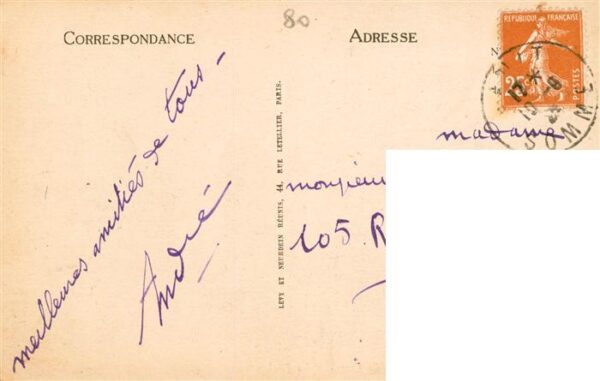 80
CORRESPONDANCE
ADRESSE
REPUBLIQUE FRANÇAISE
POSTES
25
SOMME
meilleures amitiés de tous -
André
LEVY ET NEURDEIN RÉUNIS, 44, RUE LETELLIER, PARIS.
madame
monsieur
105. R